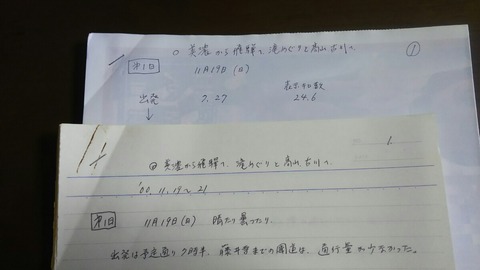 ○ 美濃から飛騨で 滝めぐりと高山、古川へ ①
第1日 11月19日(日)
表示キロ数
出発 7.27 24.6
↓
1.
◎ 美濃から飛騨で、滝めぐりと高山、古川へ。
'00.11.19〜21
第1日 11月19日(日) 晴たり曇ったり。
出発は予定通り7時半、藤井寺までの国道は、通行量が少なかった。